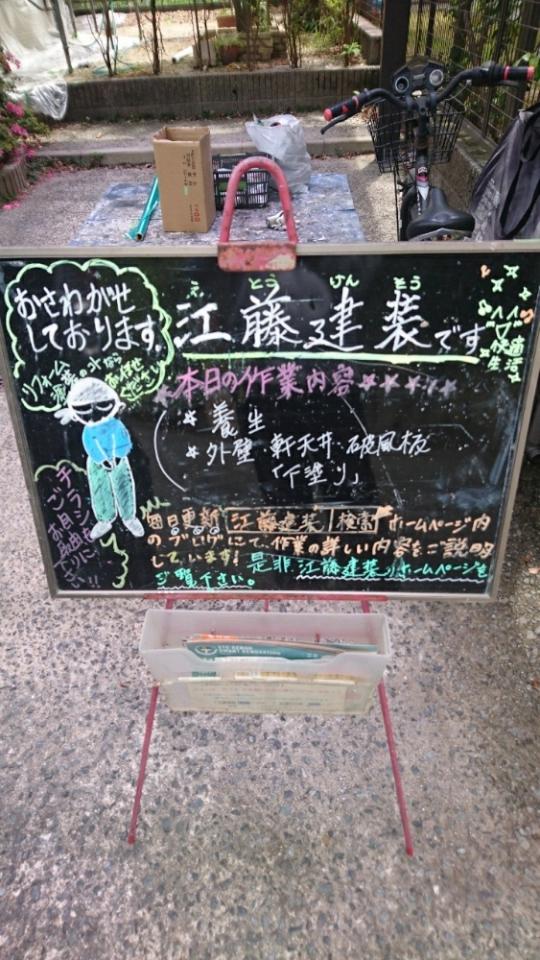 おさわがせ
しております
リフォーム
え とう けん そう
江藤建装です
快適
生活
本日の作業内容
* 養生
* 外壁・軒天井・破風板
「下塗り」
チラシを
ご自由に
お取り下さい!!
毎日更新 江藤建装 検索 ホームページ内
のブログにて、作業の詳しい内容をご説明
しています! 是非江藤建装のホームページを
ご覧下さい。